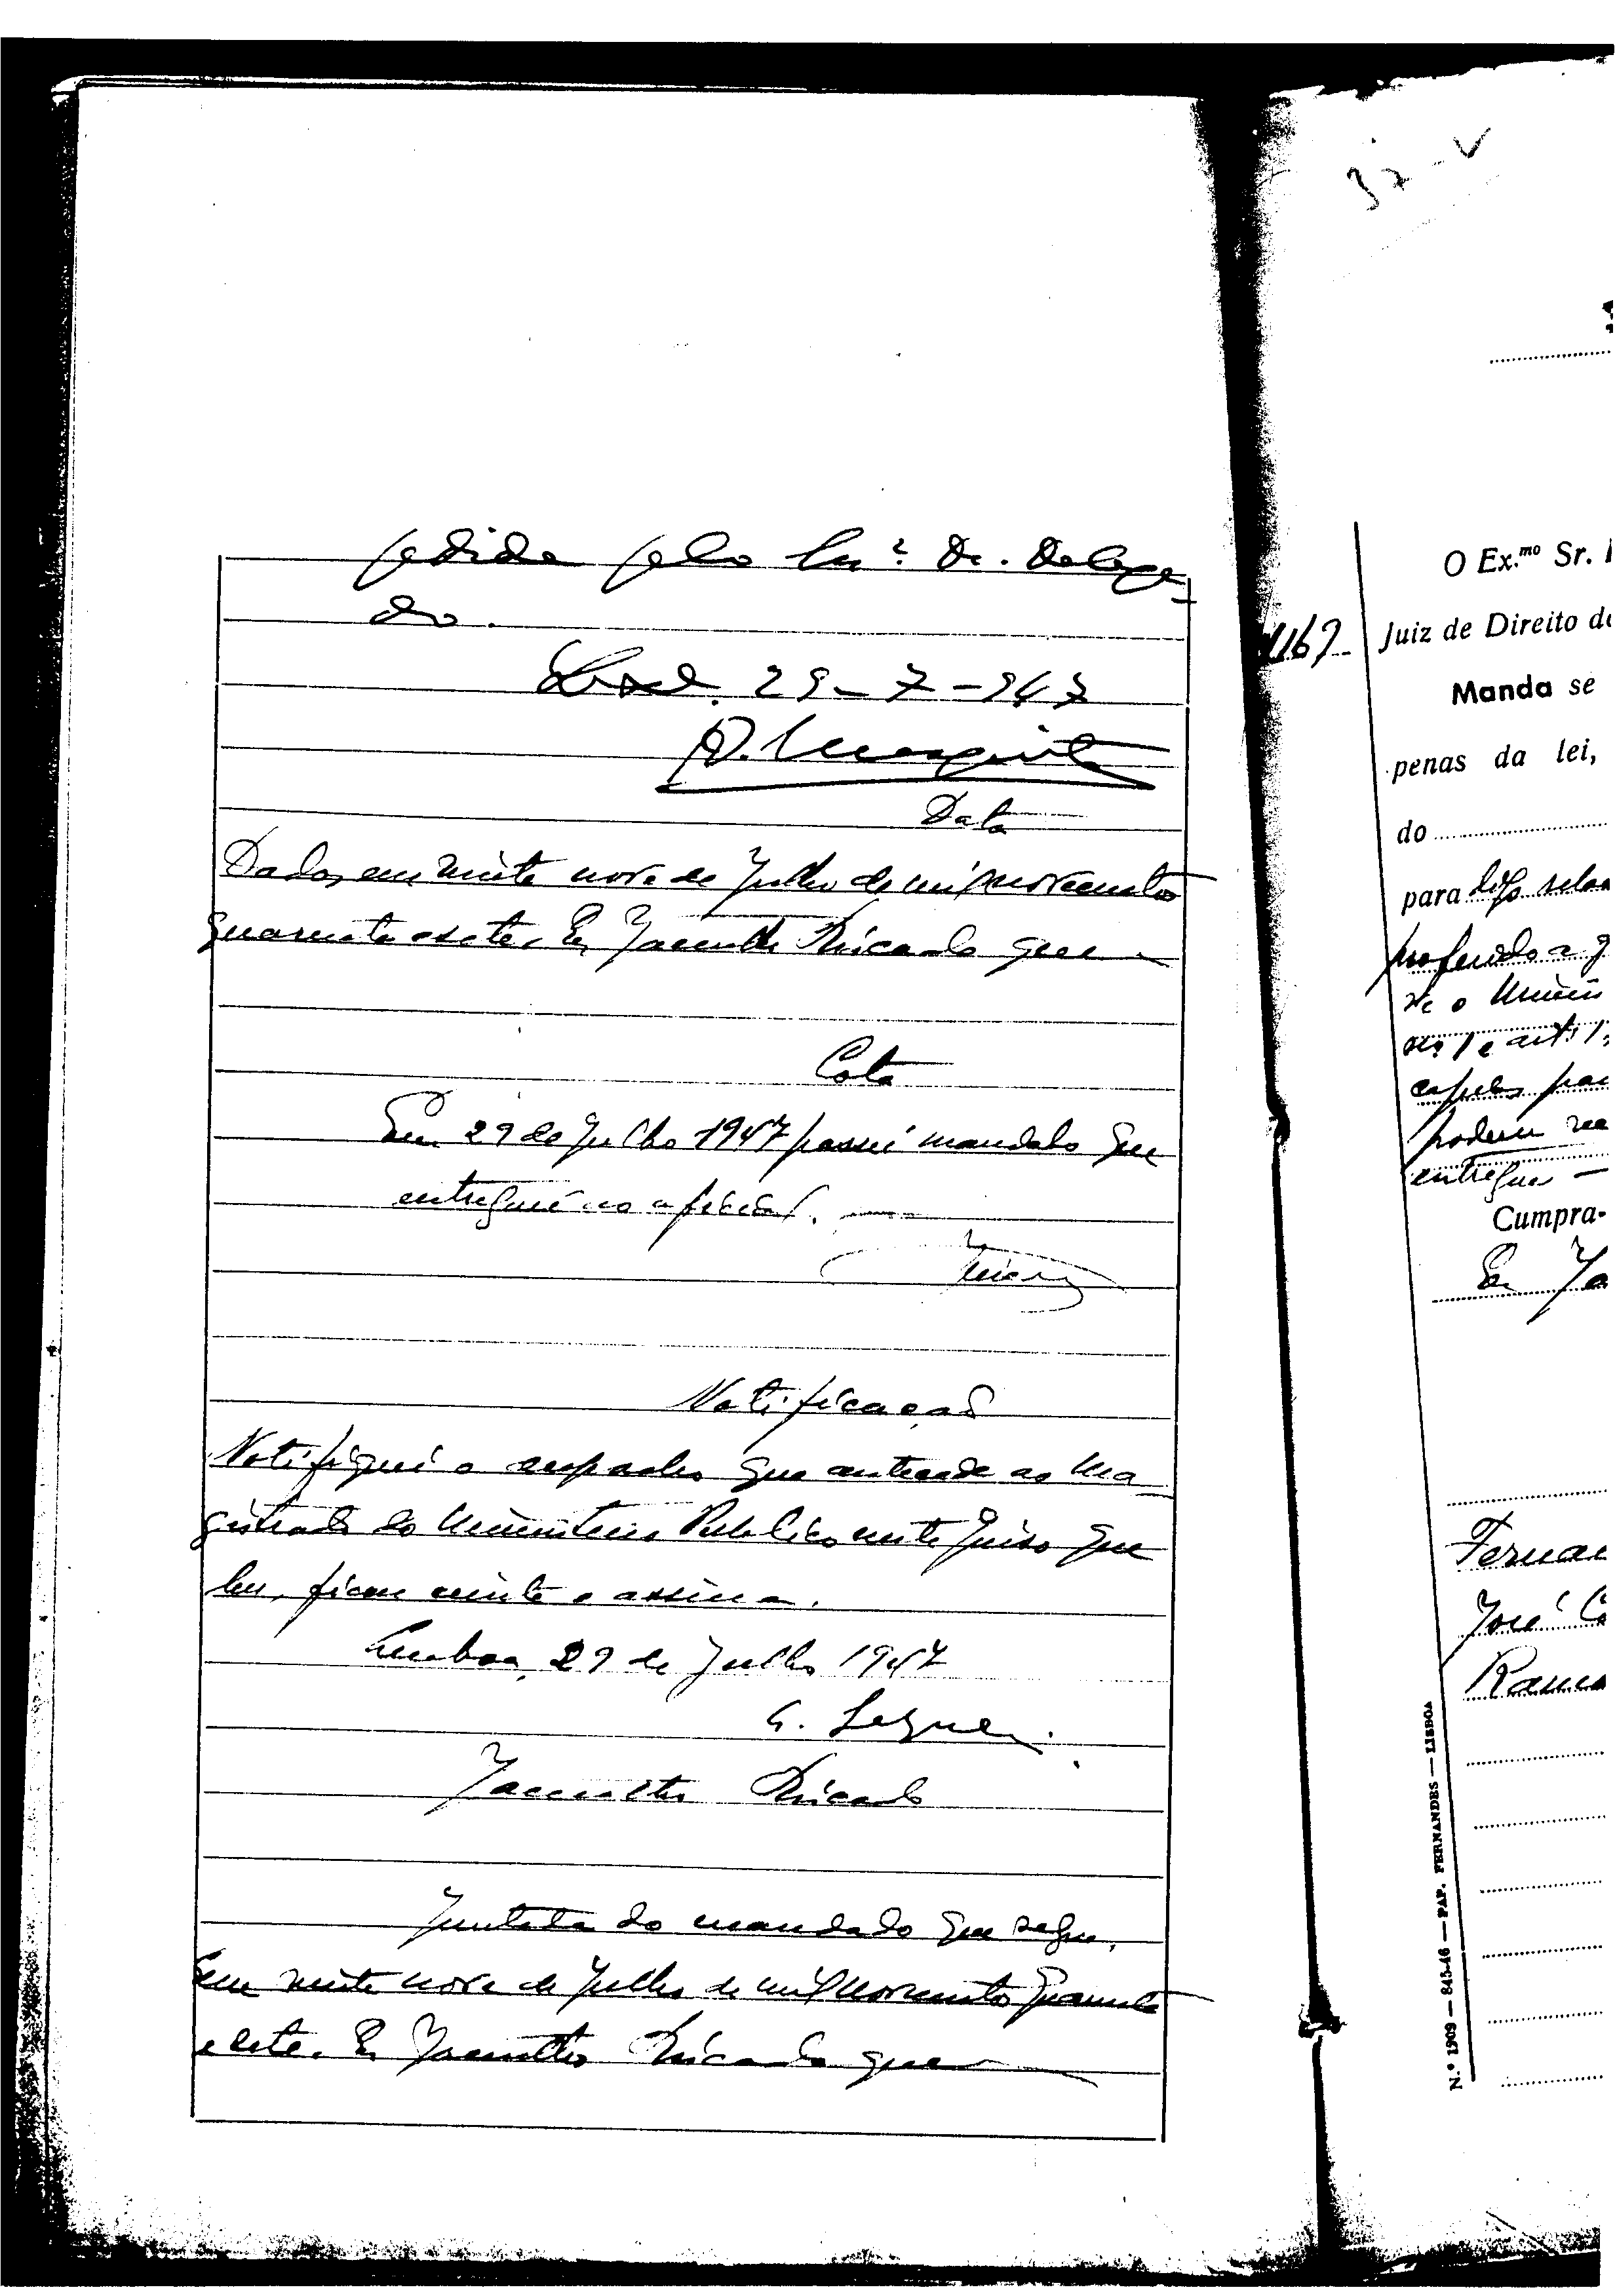 pedida pelo Snr. Dr. Delega-
do.
Lxa. 29-7-947
Data
Dados em vinte nove de Julho de mil novecentos
quarenta e sete. Eu Jacintho Ricardo que
Cota
Em 29 de Julho 1947 passei mandado que
entreguei ao oficial.
Notificação
Notifiquei o despacho que antecede ao Ma
gistrado do Ministerio Publico neste Juizo que
leu, ficou ciente e assina.
Lisboa, 29 de Julho 1947
Jacintho Ricardo
Juntada do mandado que segue.
Em vinte nove de Julho de mil novecentos quarenta
e sete. Eu Jacintho Ricardo que
37-V
O Ex.mo Sr.
Juiz de Direito d
Manda se
penas da lei,
do
para
proferido a q
ve o Minis
capelas par
podem rea
entregues —
Cumpra-
Eu Ja
Fernan
José C
Ramo
N.º 1909 — 845-46 — PAP. FERNANDES — LISBOA